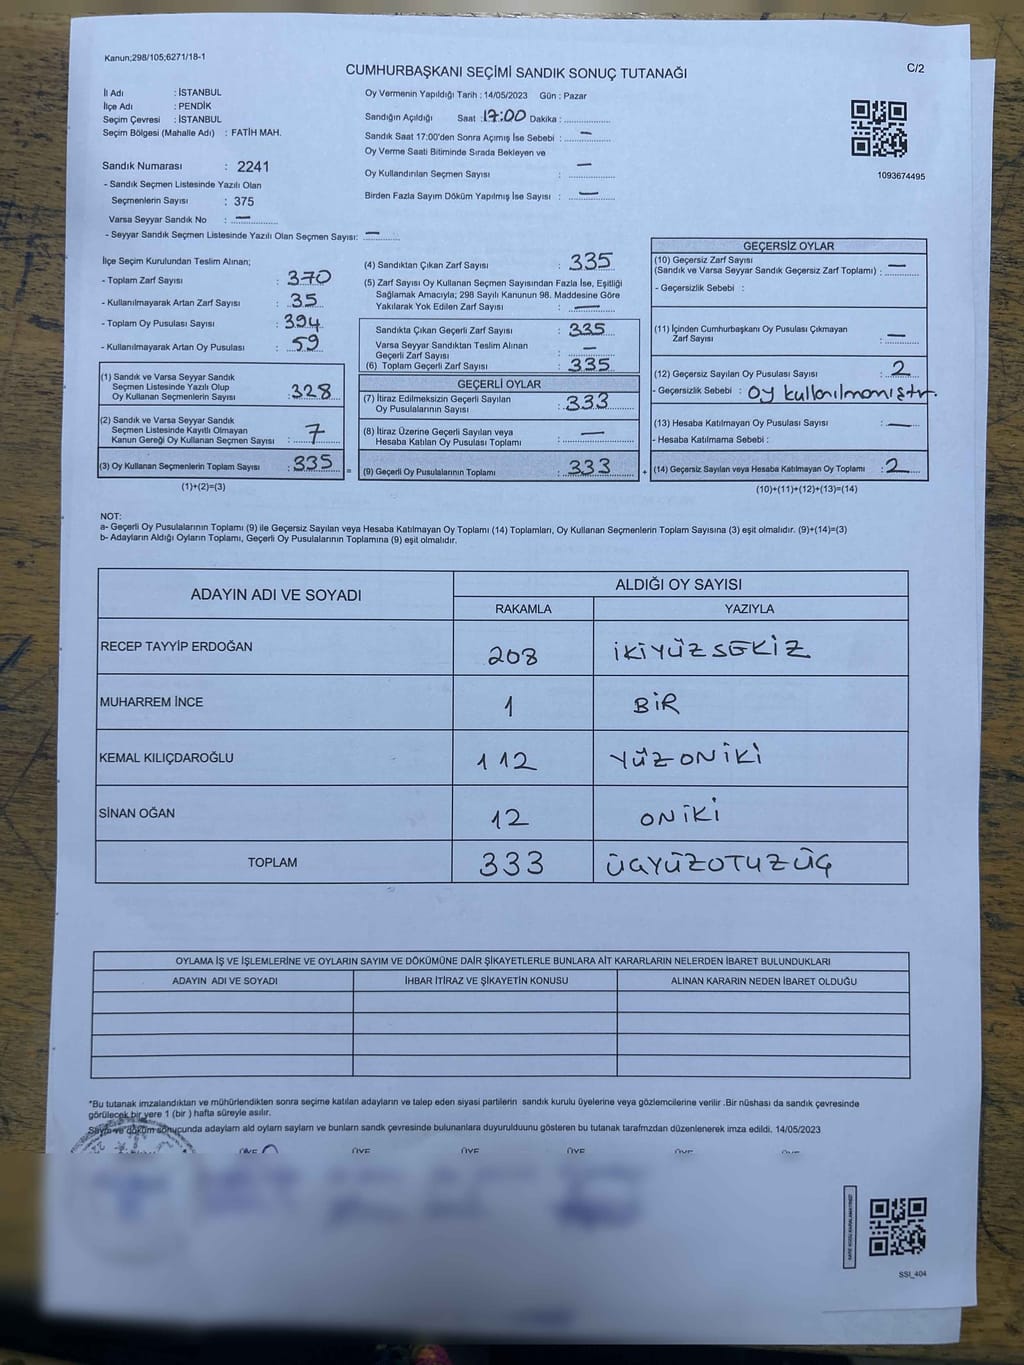 Kanun;298/105;6271/18-1
CUMHURBAŞKANI SEÇİMİ SANDIK SONUÇ TUTANAĞI
C/2
İl Adı : İSTANBUL
İlçe Adı : PENDİK
Seçim Çevresi : İSTANBUL
Seçim Bölgesi (Mahalle Adı) : FATİH MAH.
Sandık Numarası : 2241
- Sandık Seçmen Listesinde Yazılı Olan
Seçmenlerin Sayısı : 375
Varsa Seyyar Sandık No : —
- Seyyar Sandık Seçmen Listesinde Yazılı Olan Seçmen Sayısı: —
Oy Vermenin Yapıldığı Tarih : 14/05/2023 Gün : Pazar
Sandığın Açıldığı Saat : 17:00 Dakika :
Sandık Saat 17:00'den Sonra Açımış İse Sebebi : —
Oy Verme Saati Bitiminde Sırada Bekleyen ve
Oy Kullandırılan Seçmen Sayısı : —
Birden Fazla Sayım Döküm Yapılmış İse Sayısı : —
1093674495
İlçe Seçim Kurulundan Teslim Alınan;
- Toplam Zarf Sayısı : 370
- Kullanılmayarak Artan Zarf Sayısı : 35
- Toplam Oy Pusulası Sayısı : 394
- Kullanılmayarak Artan Oy Pusulası : 59
(1) Sandık ve Varsa Seyyar Sandık
Seçmen Listesinde Yazılı Olup
Oy Kullanan Seçmenlerin Sayısı : 328
(2) Sandık ve Varsa Seyyar Sandık
Seçmen Listesinde Kayıtlı Olmayan
Kanun Gereği Oy Kullanan Seçmen Sayısı : 7
(3) Oy Kullanan Seçmenlerin Toplam Sayısı : 335 =
(1)+(2)=(3)
(4) Sandıktan Çıkan Zarf Sayısı : 335
(5) Zarf Sayısı Oy Kullanan Seçmen Sayısından Fazla İse, Eşitliği
Sağlamak Amacıyla; 298 Sayılı Kanunun 98. Maddesine Göre
Yakılarak Yok Edilen Zarf Sayısı : —
Sandıkta Çıkan Geçerli Zarf Sayısı : 335
Varsa Seyyar Sandıktan Teslim Alınan
Geçerli Zarf Sayısı : —
(6) Toplam Geçerli Zarf Sayısı : 335
GEÇERLİ OYLAR
(7) İtiraz Edilmeksizin Geçerli Sayılan
Oy Pusulalarının Sayısı : 333
(8) İtiraz Üzerine Geçerli Sayılan veya
Hesaba Katılan Oy Pusulası Toplamı : —
(9) Geçerli Oy Pusulalarının Toplamı : 333 +
GEÇERSİZ OYLAR
(10) Geçersiz Zarf Sayısı
(Sandık ve Varsa Seyyar Sandık Geçersiz Zarf Toplamı) : —
- Geçersizlik Sebebi :
(11) İçinden Cumhurbaşkanı Oy Pusulası Çıkmayan
Zarf Sayısı : —
(12) Geçersiz Sayılan Oy Pusulası Sayısı : 2
- Geçersizlik Sebebi : Oy kullanılmamıştır.
(13) Hesaba Katılmayan Oy Pusulası Sayısı : —
- Hesaba Katılmama Sebebi :
(14) Geçersiz Sayılan veya Hesaba Katılmayan Oy Toplamı : 2
(10)+(11)+(12)+(13)=(14)
NOT:
a- Geçerli Oy Pusulalarının Toplamı (9) ile Geçersiz Sayılan veya Hesaba Katılmayan Oy Toplamı (14) Toplamları, Oy Kullanan Seçmenlerin Toplam Sayısına (3) eşit olmalıdır. (9)+(14)=(3)
b- Adayların Aldığı Oyların Toplamı, Geçerli Oy Pusulalarının Toplamına (9) eşit olmalıdır.
ADAYIN ADI VE SOYADI ALDIĞI OY SAYISI
RAKAMLA YAZIYLA
RECEP TAYYİP ERDOĞAN 208 İKİYÜZSEKİZ
MUHARREM İNCE 1 BİR
KEMAL KILIÇDAROĞLU 112 YÜZONİKİ
SİNAN OĞAN 12 ONİKİ
TOPLAM 333 ÜÇYÜZOTUZÜÇ
OYLAMA İŞ VE İŞLEMLERİNE VE OYLARIN SAYIM VE DÖKÜMÜNE DAİR ŞİKAYETLERLE BUNLARA AİT KARARLARIN NELERDEN İBARET BULUNDUKLARI
ADAYIN ADI VE SOYADI İHBAR İTİRAZ VE ŞİKAYETİN KONUSU ALINAN KARARIN NEDEN İBARET OLDUĞU
*Bu tutanak imzalandıktan ve mühürlendikten sonra seçime katılan adayların ve talep eden siyasi partilerin sandık kurulu üyelerine veya gözlemcilerine verilir .Bir nüshası da sandık çevresinde
görülecek bir yere 1 (bir ) hafta süreyle asılır.
Sayım ve döküm sonuçunda adaylarn ald oylarn saylam ve bunların sandk çevresinde bulunanlara duyurulduunu gösteren bu tutanak tarafmzdan düzenlenerek imza edildi. 14/05/2023
ÜYE ÜYE ÜYE ÜYE ÜYE
SSI_404